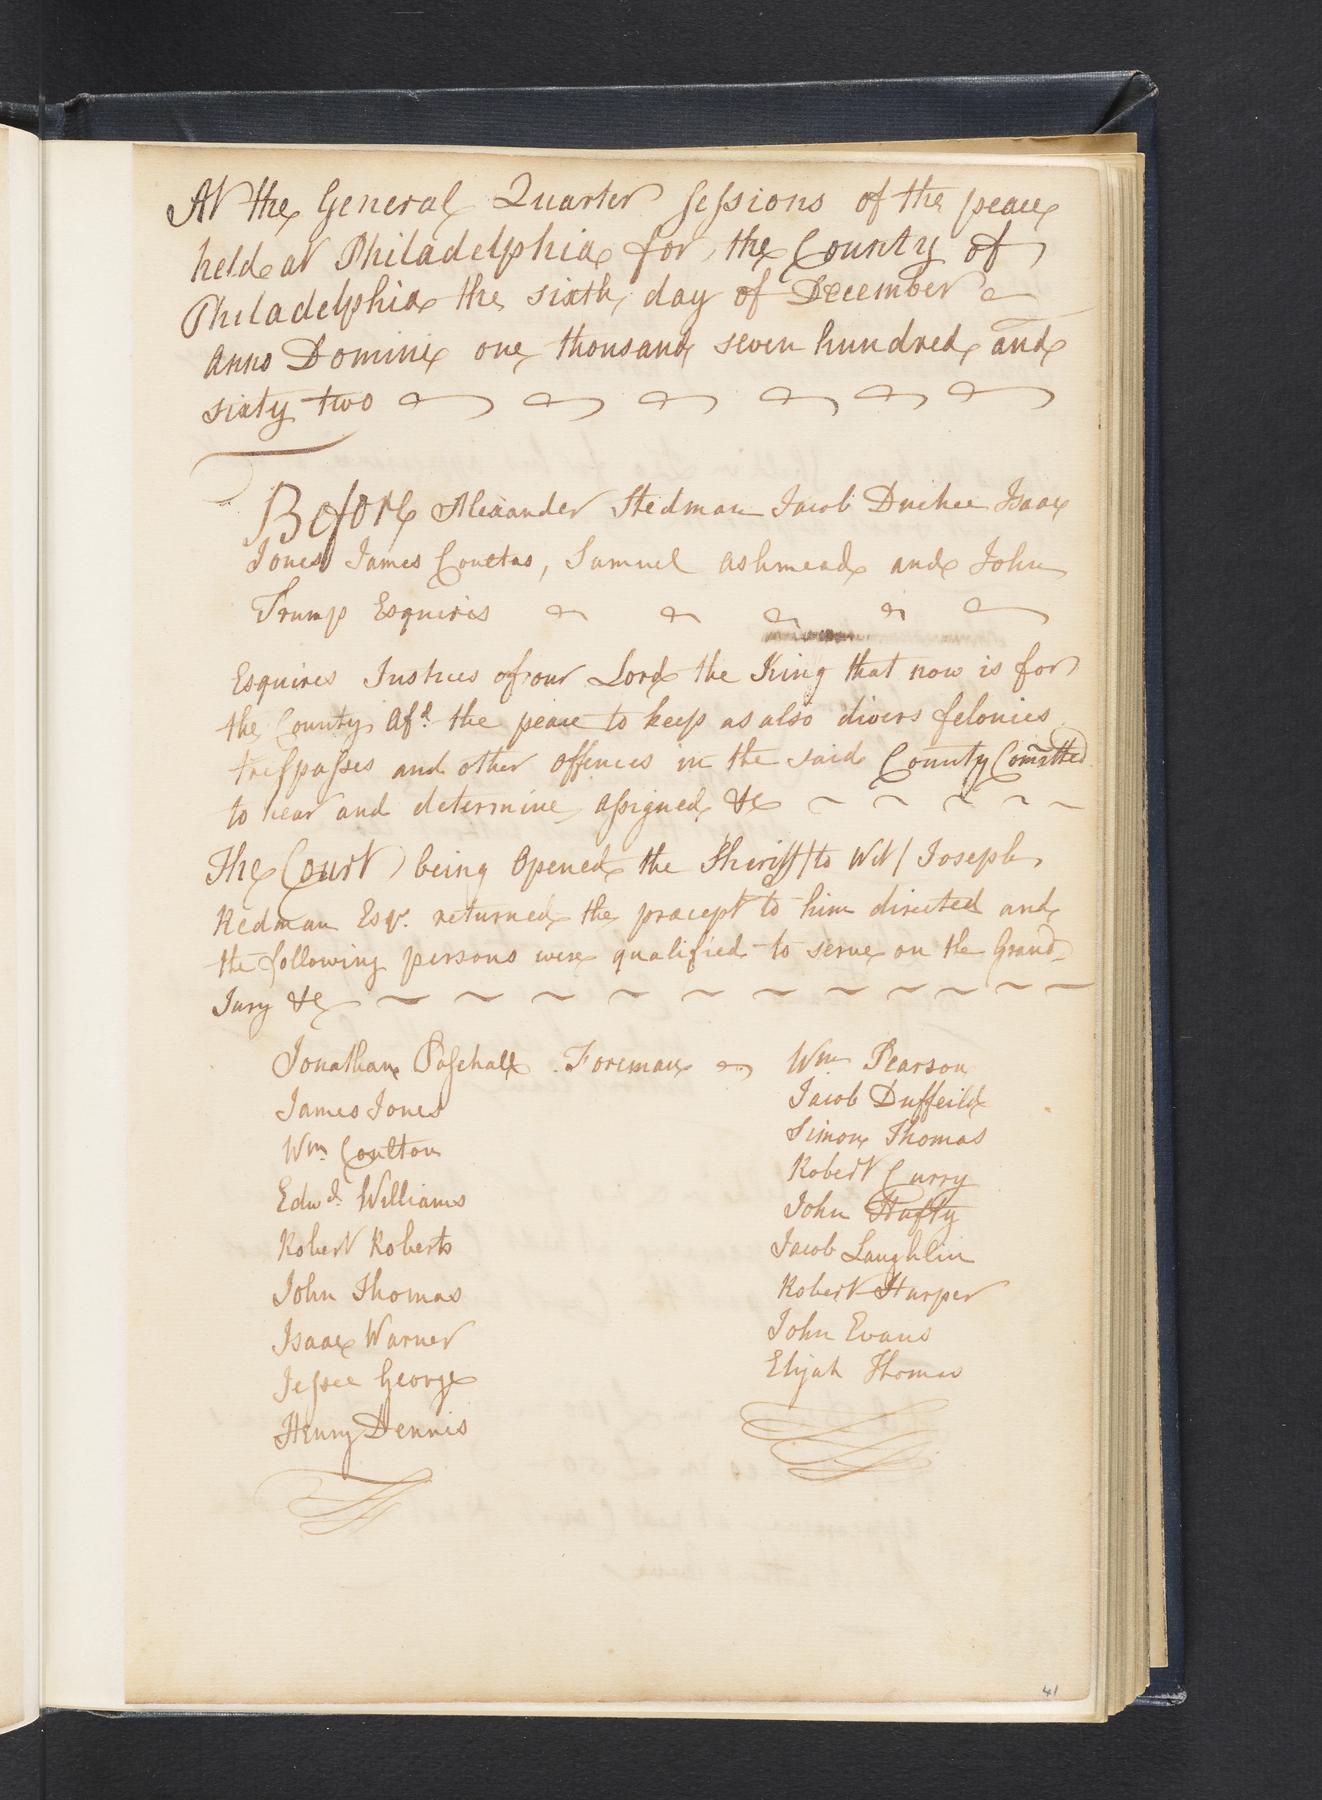 At the General Quarter Sessions of the peace
held at Philadelphia for the County of
Philadelphia the sixth day of December
Anno Domini one thousand seven hundred and
sixty two
Before Alexander Stedman Jacob Duchee Isaac
Jones James Coultas, Samuel Ashmead and John
Trump Esquires
Esquires Justices of our Lord the King that now is for
the County Afd. the peace to keep as also divers felonies
trespasses and other offences in the said County Com̅itted
to hear and determine assigned &c
The Court being Opened the Sheriff /to Wit/ Joseph
Redman Esqr. returned the precept to him directed and
the following persons were qualified to serve on the Grand
Jury &c
Jonathan Paschall Foreman
James Jones
Wm. Coulton
Edwd. Williams
Robert Roberts
John Thomas
Isaac Warner
Jessee George
Henry Dennis
Wm Pearson
Jacob Duffeild
Simon Thomas
Robert Curry
John Hufty
Jacob Laughlin
Robert Harper
John Evans
Elijah Thomas
41